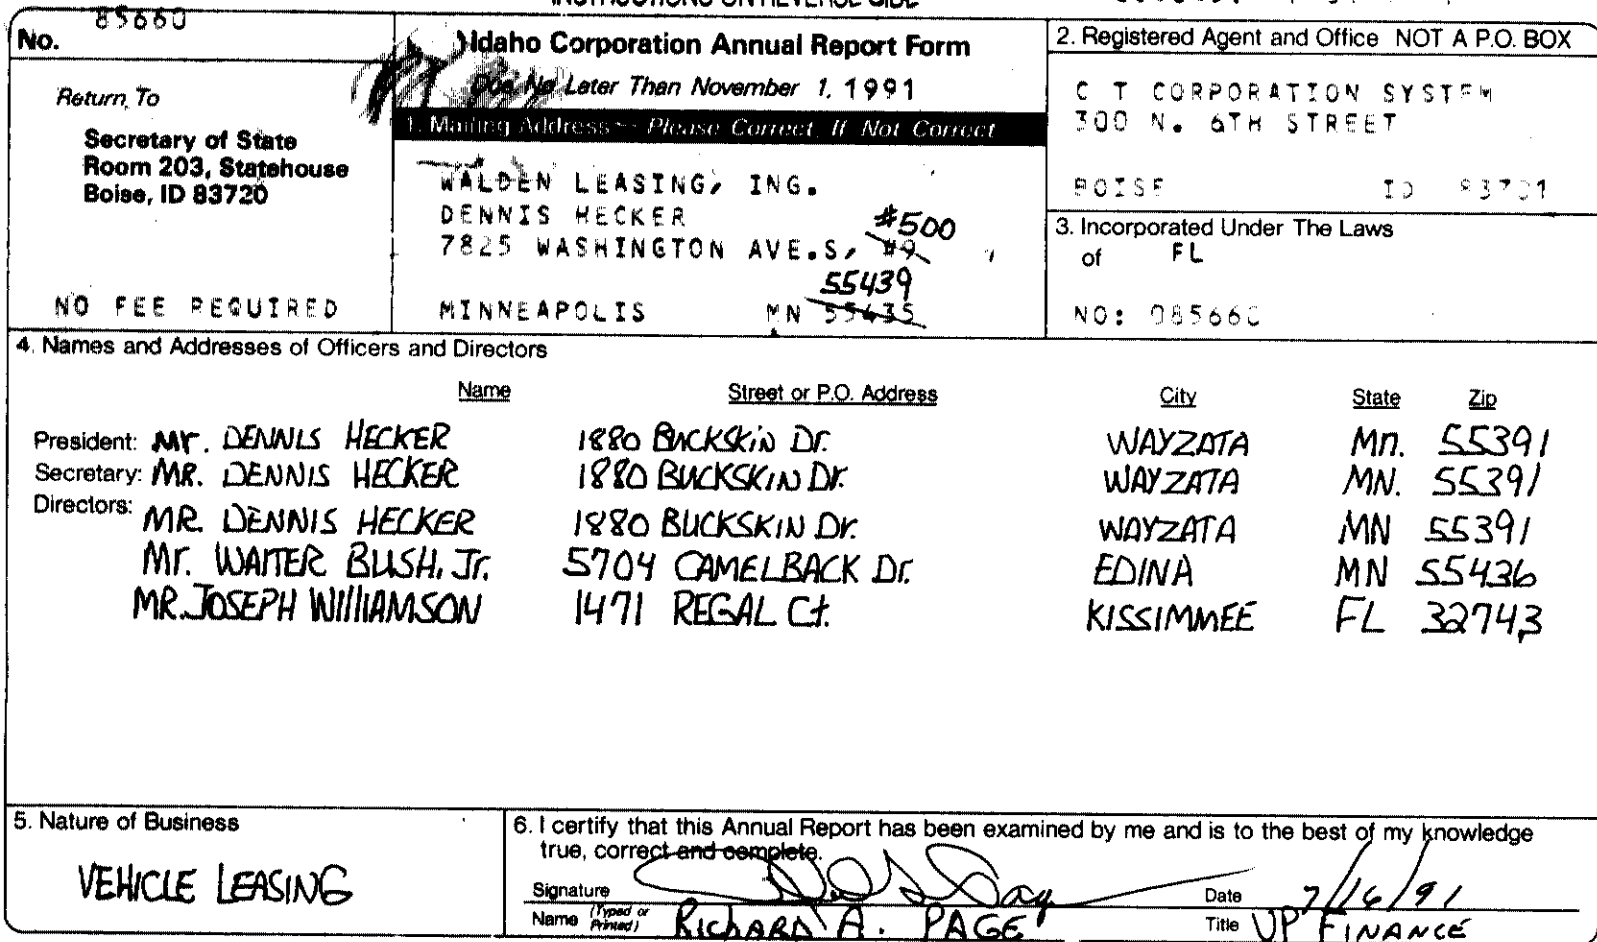 INSTRUCTIONS ON REVERSE SIDE
No. 85660
Return To
Secretary of State
Room 203, Statehouse
Boise, ID 83720
NO FEE REQUIRED
Idaho Corporation Annual Report Form
Due No Later Than November 1, 1991
1. Mailing Address - Please Correct, If Not Correct
WALDEN LEASING, ING.
DENNIS HECKER
#500
7825 WASHINGTON AVE.S, #9
55439
MINNEAPOLIS MN 55435
2. Registered Agent and Office NOT A P.O. BOX
C T CORPORATION SYSTEM
300 N. 6TH STREET
BOISE ID 83701
3. Incorporated Under The Laws
of FL
NO: 085660
4. Names and Addresses of Officers and Directors
Name Street or P.O. Address City State Zip
President: Mr. DENNIS HECKER 1880 BUCKSKIN Dr. WAYZATA Mn. 55391
Secretary: MR. DENNIS HECKER 1880 BUCKSKIN Dr. WAYZATA MN. 55391
Directors: MR. DENNIS HECKER 1880 BUCKSKIN Dr. WAYZATA MN 55391
Mr. WALTER BUSH, Jr. 5704 CAMELBACK Dr. EDINA MN 55436
MR. JOSEPH WILLIAMSON 1471 REGAL Ct. KISSIMMEE FL 32743
5. Nature of Business
VEHICLE LEASING
6. I certify that this Annual Report has been examined by me and is to the best of my knowledge
true, correct and complete.
Signature Date 7/16/91
Name (Typed or Printed) RICHARD A. PAGE Title VP FINANCE